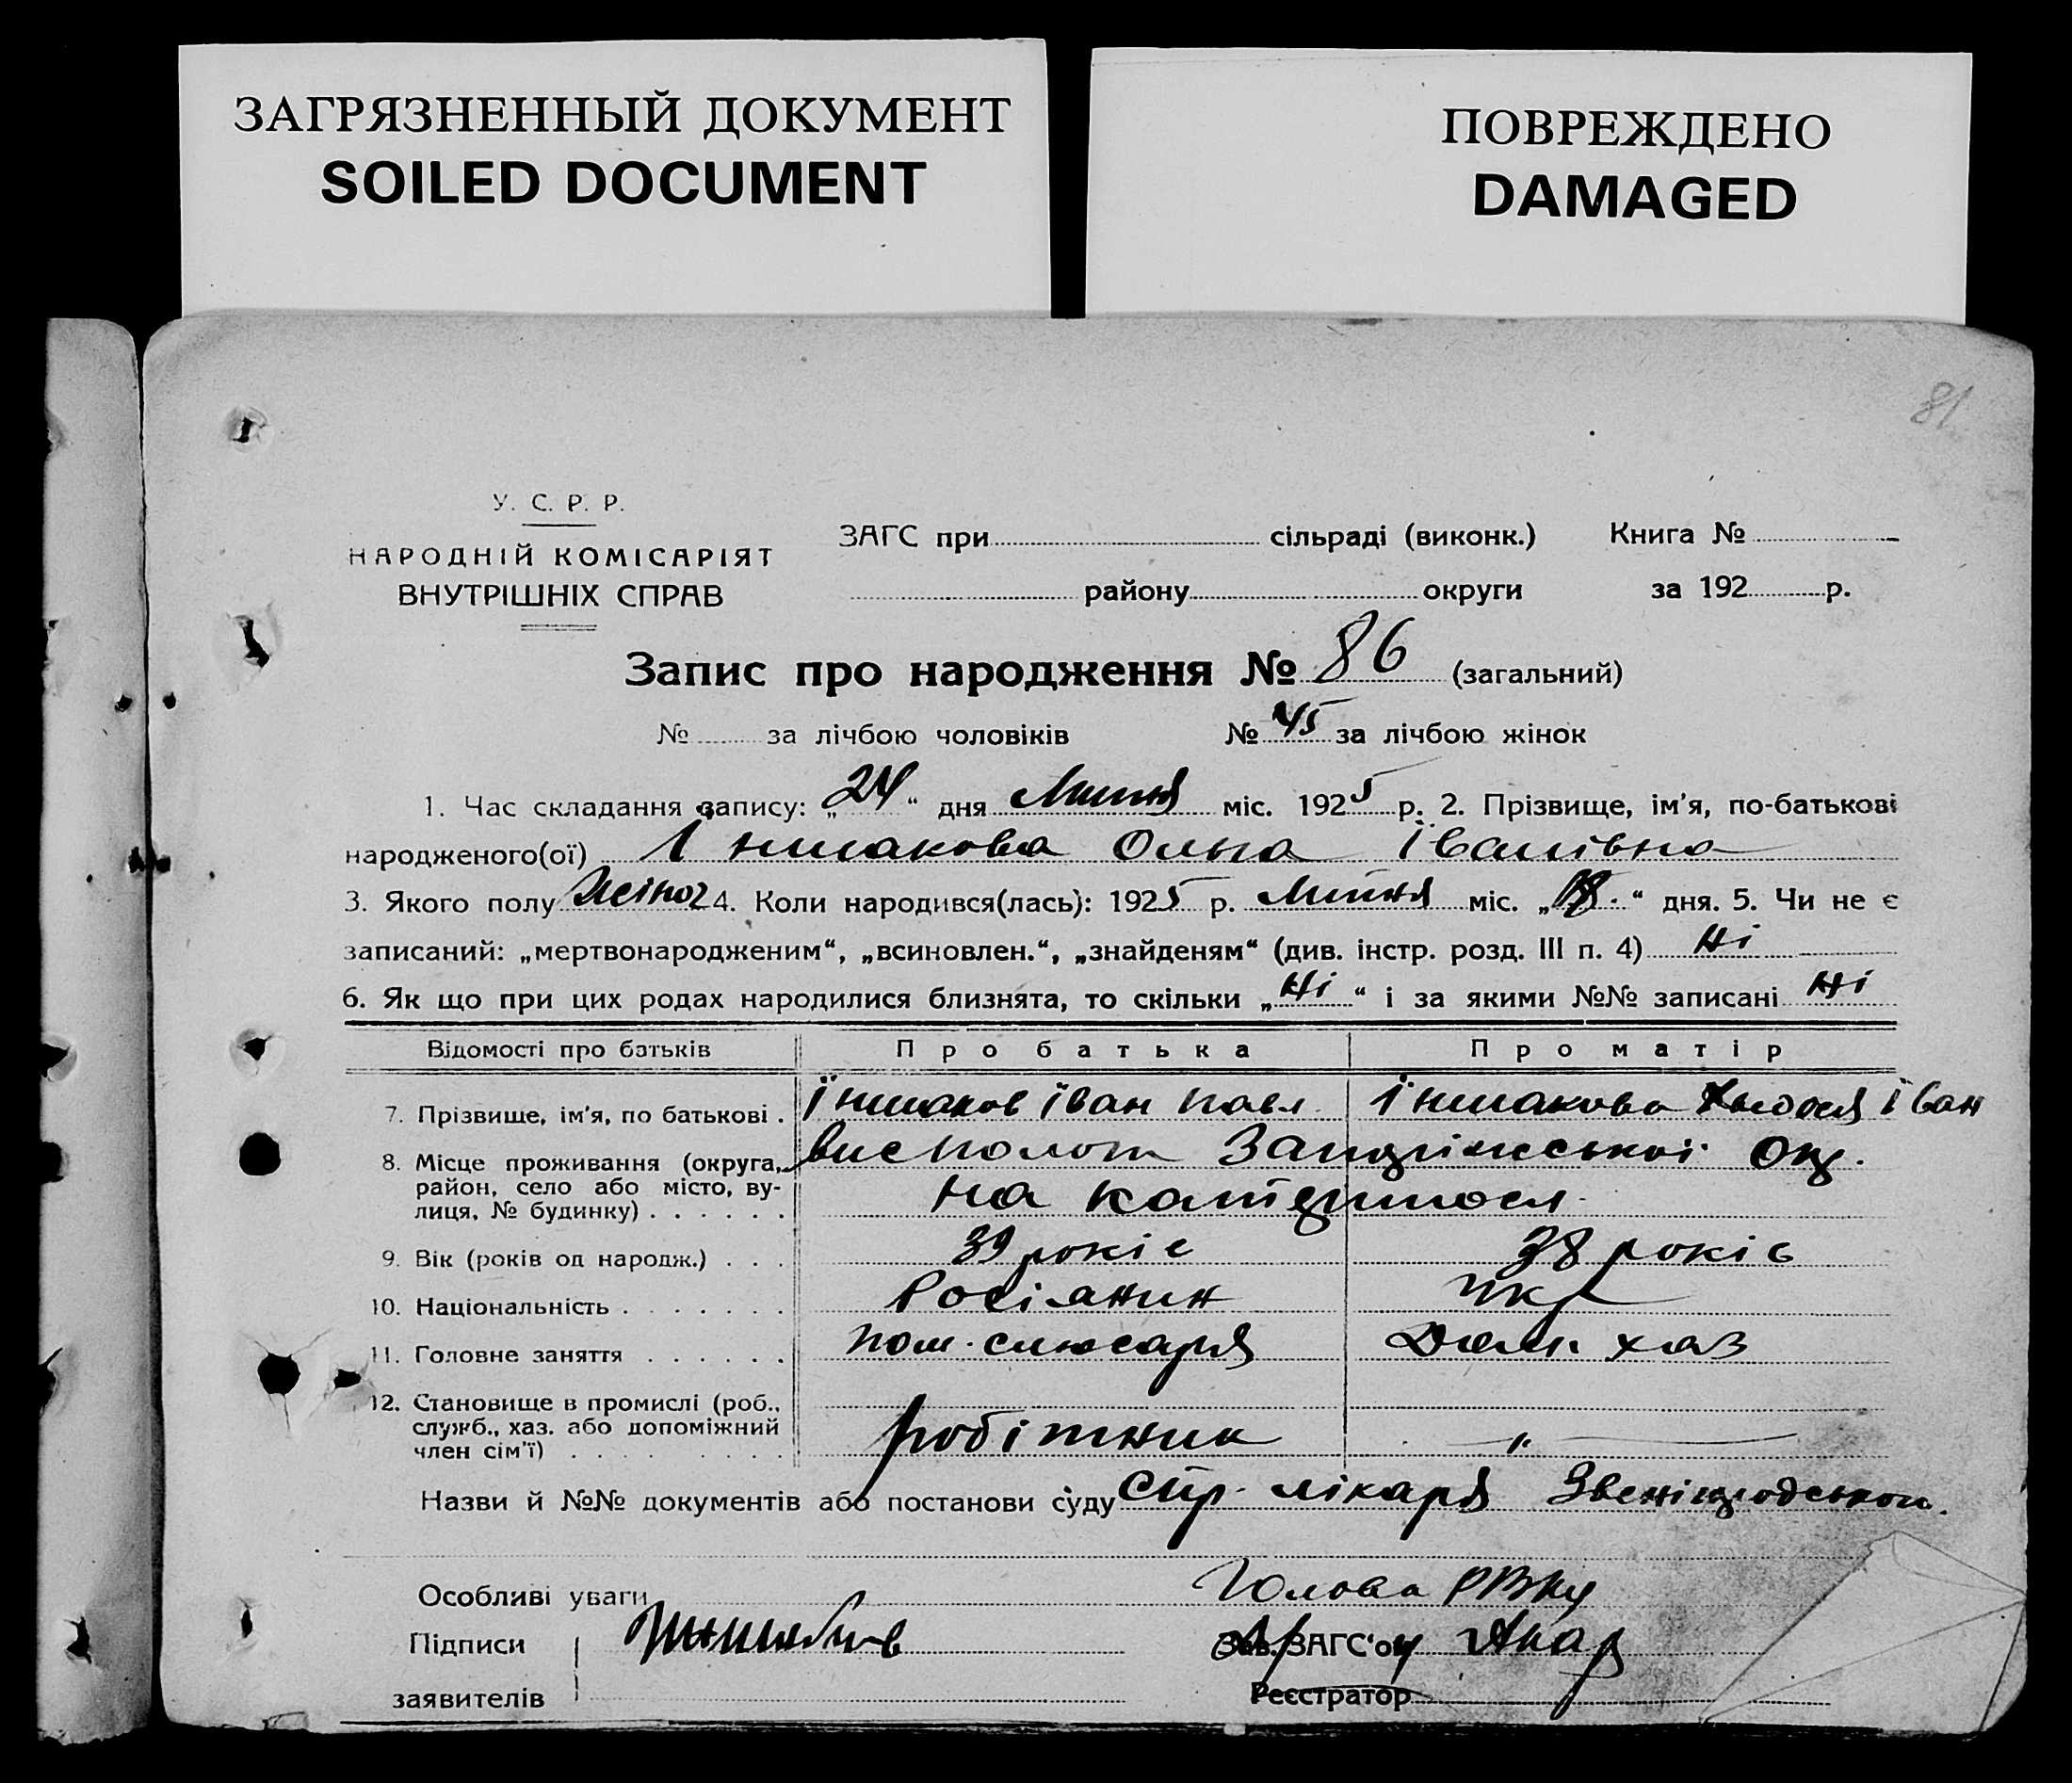 ЗАГРЯЗНЕННЫЙ ДОКУМЕНТ
SOILED DOCUMENT
ПОВРЕЖДЕНО
DAMAGED
81
У. С. Р. Р.
НАРОДНІЙ КОМІСАРІЯТ
ВНУТРІШНІХ СПРАВ
ЗАГС при сільраді (виконк.) Книга №
району округи за 192 р.
Запис про народження № 86 (загальний)
№ за лічбою чоловіків № 45 за лічбою жінок
1. Час складання запису: „24“ дня Липня міс. 1925 р. 2. Прізвище, ім'я, по-батькові
народженого(ої) Іншакова Ольга Іванівна
3. Якого полу жіноч 4. Коли народився(лась): 1925 р. Липня міс. „ “ дня. 5. Чи не є
записаний: „мертвонародженим“, „всиновлен.“, „знайденям“ (див. інстр. розд. III п. 4) Ні
6. Як що при цих родах народилися близнята, то скільки „Ні“ і за якими №№ записані Ні
Відомості про батьків Про батька Про матір
7. Прізвище, ім'я, по батькові . Іншаков Іван Павл Іншакова Іван
8. Місце проживання (округа, район, село або місто, вулиця, № будинку) . . . . . .
на
9. Вік (років од народж.) . . . 39 років 38 років
10. Національність . . . . . . . Росіянин Укр
11. Головне заняття . . . . . . пом. слюсаря Дом. хаз
12. Становище в промислі (роб.,
служб., хаз. або допоміжний
член сім'ї) . . . . . . . . . робітник „
Назви й №№ документів або постанови суду лікаря
Особливі уваги Голова РВКу
Підписи Зав. ЗАГС'ом
заявителів Реєстратор